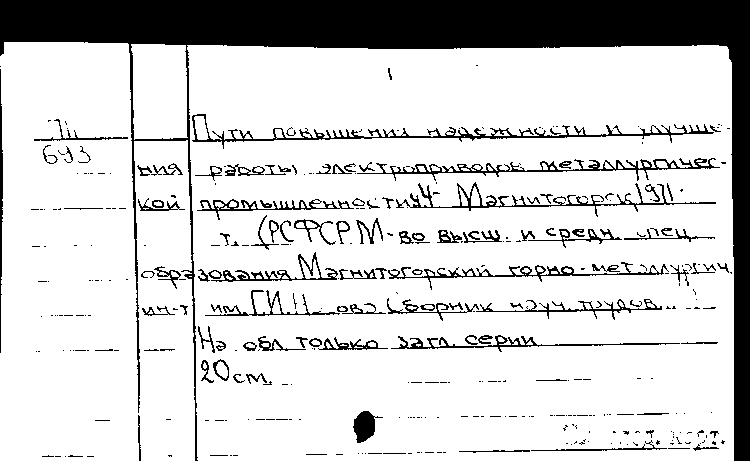 693
Пути повышения надежности и улучше-
ния работы электроприводов металлургичес-
кой промышленности Магнитогорск 1971.
т. (РСФСР М-во высш. и средн. спец
образования Магнитогорский горно-металлургич
ин-т им. Г.И. Сборник науч. трудов
На обл. только загл. серии
20 см.